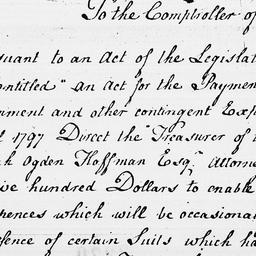 To the Comptroller of
suant to an Act of the Legislat
entitled "an act for the Paymen
nment and other contingent Exp
1797 Direct the Treasurer of
Ogden Hoffman Esqr. Attorne
ive hundred Dollars to enable
pences which will be occasional
fence of certain Suits which ha